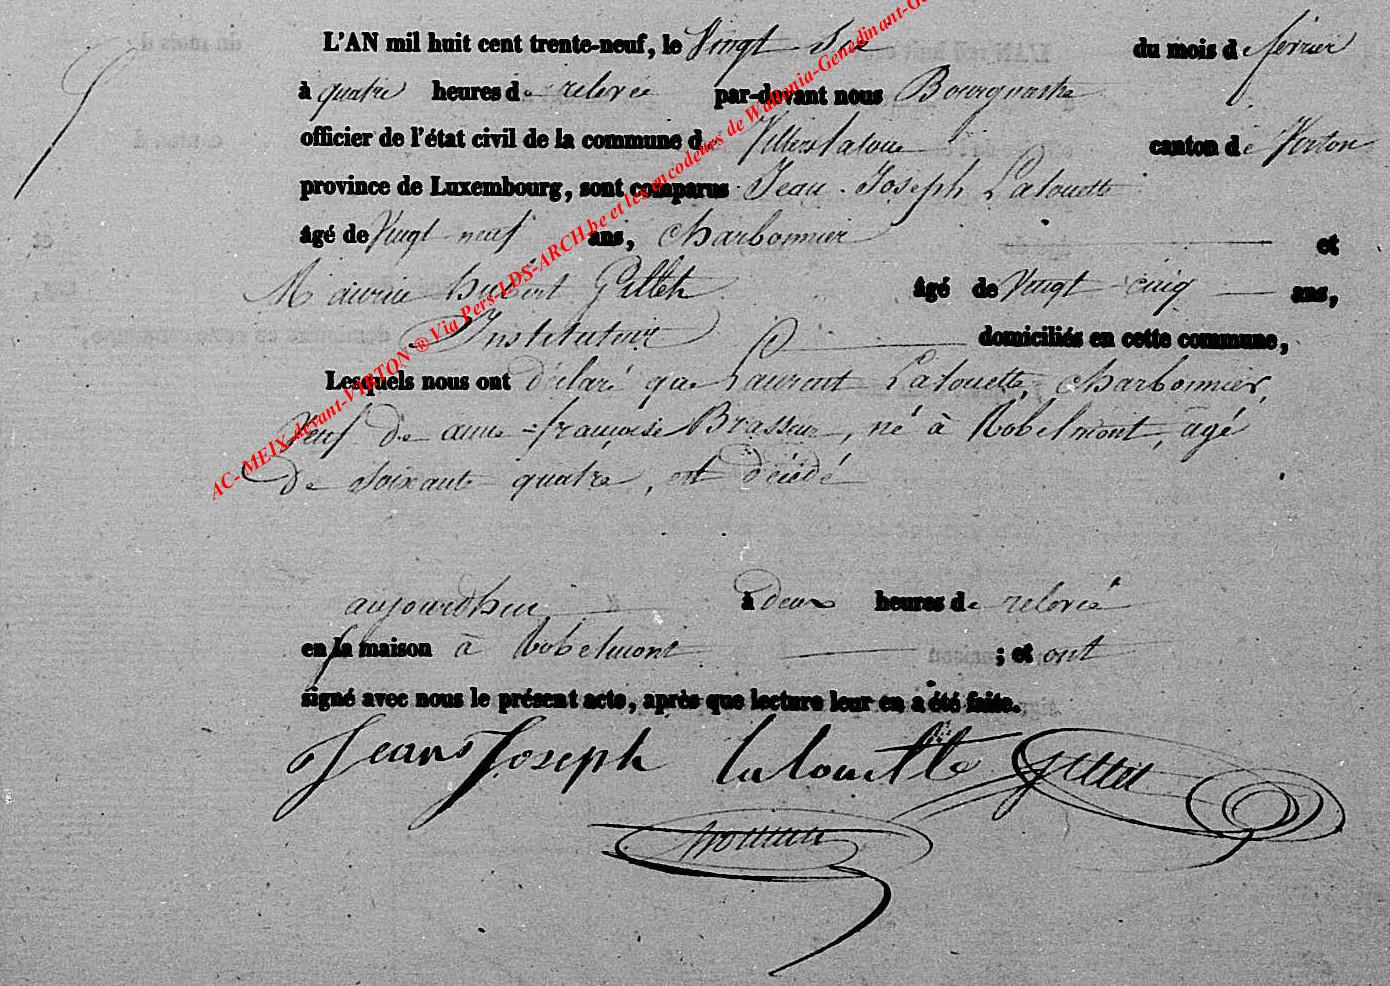 L'AN mil huit cent trente-neuf, le Vingt Six du mois de fevrier
à quatre heures de relevée par-devant nous Bourguestre
officier de l'état civil de la commune de Villerslaloue canton de Virton
province de Luxembourg, sont comparus Jean Joseph Lalouette
âgé de Vingt neuf ans, charbonnier et
hubert Gillet âgé de Vingt cinq ans,
Instituteur domiciliés en cette commune,
Lesquels nous ont déclaré que Laurent Lalouette, charbonnier,
Veuf de anne françoise Brasseur, né à Robelmont, agé
de soixante quatre, est décédé
aujourdhui à deux heures de relevée
en la maison à Robelmont ; et ont
signé avec nous le présent acte, après que lecture leur en a été faite.
Jean Joseph lalouette Gillet
AC- MEIX-devant-VIRTON ® Via Pers-LDS-ARCH.be et les encodeurs de Wallonia-Genedinant-Ge